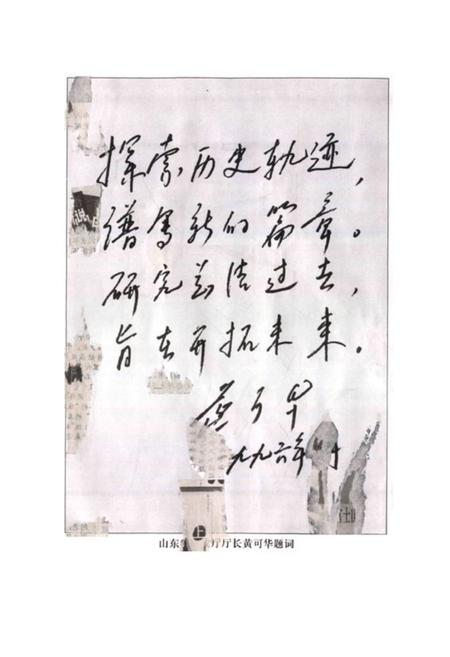 探索历史轨迹，
谱写新的篇章。
研究总结过去，
旨在开拓未来。
黄可华
九九六年
山东 厅厅长黄可华题词
上